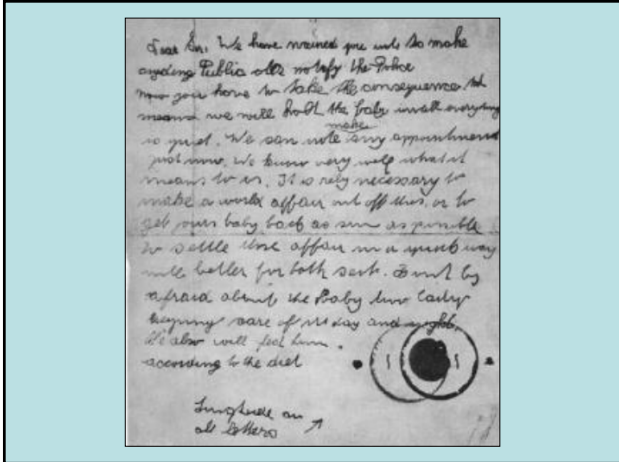 Dear Sir. We have warned you note to make
anyding Public also notify the Police
now you have to take the consequences. ths
means we will hold the baby untill everyting
is quiet. We can note make any appointment
just now. We know very well what it
means to us. It is rely necessary to
make a world affair out off this, or to
get yours baby back as sun as possible
to settle those affair in a quick way
will better for both seits. Dont by
afraid about the Baby two ladys
keeping care of its day and night.
We also will fed him
according to the diet
Singtuere on
all letters